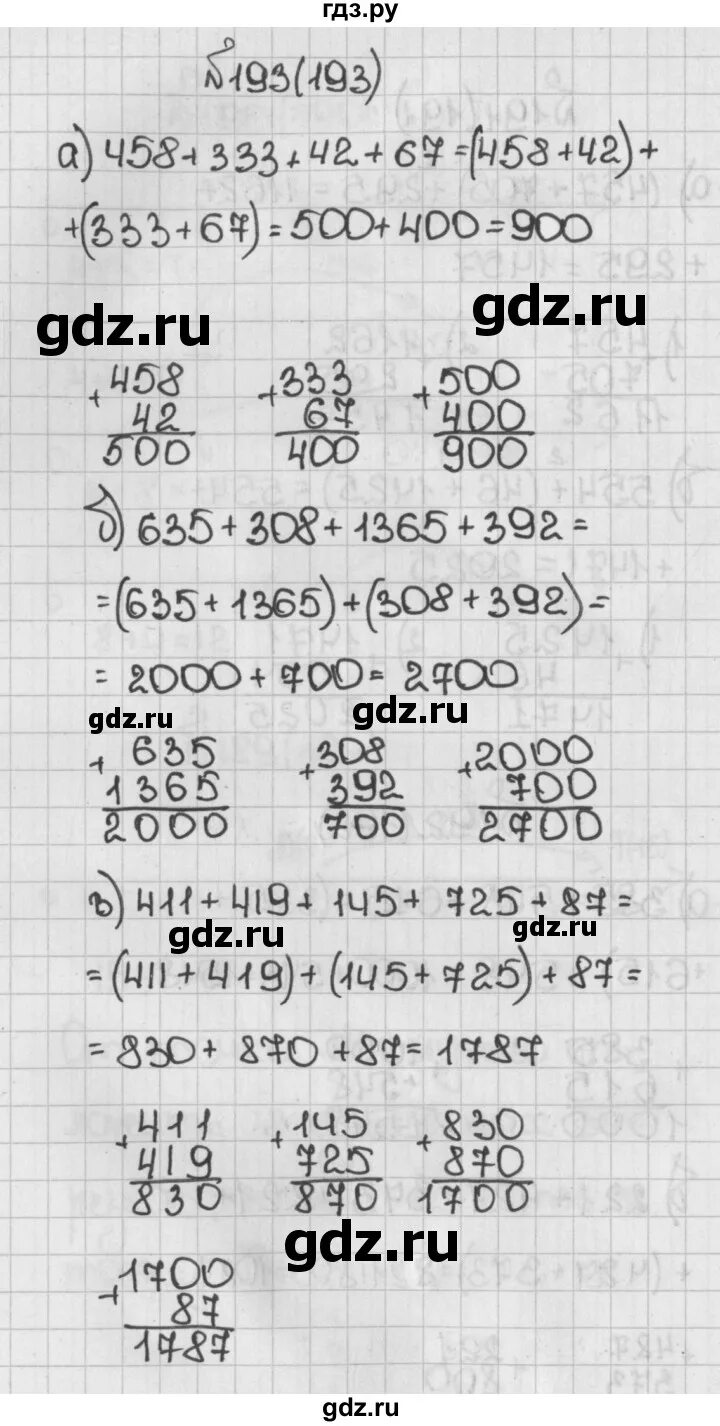 гдз.ру
№193(193)
а) 458+333+42+67=(458+42)+
+(333+67)=500+400=900
gdz.ru
gdz.ru
+458
42
500
+333
67
400
+500
400
900
б) 635+308+1365+392=
=(635+1365)+(308+392)=
=2000+700=2700
gdz.ru
gdz.ru
+635
1365
2000
+308
392
700
+2000
700
2700
в) 411+419+145+725+87=
gdz.ru
gdz.ru
=(411+419)+(145+725)+87=
=830+870+87=1787
+411
419
830
+145
725
870
+830
870
1700
gdz.ru
+1700
87
1787